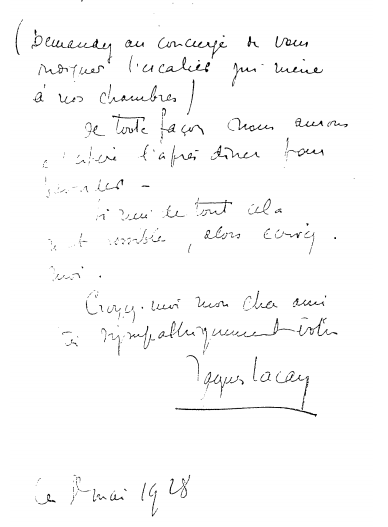 (Demandez au concierge de vous
indiquer l'escalier qui mène
à nos chambres)
De toute façon nous aurons
l'après dîner pour

Si rien de tout cela
n'est possible, alors écrivez.
moi.
Croyez-moi mon cher ami
très sympathiquement vôtre
Jacques Lacan
Ce 8 mai 1928